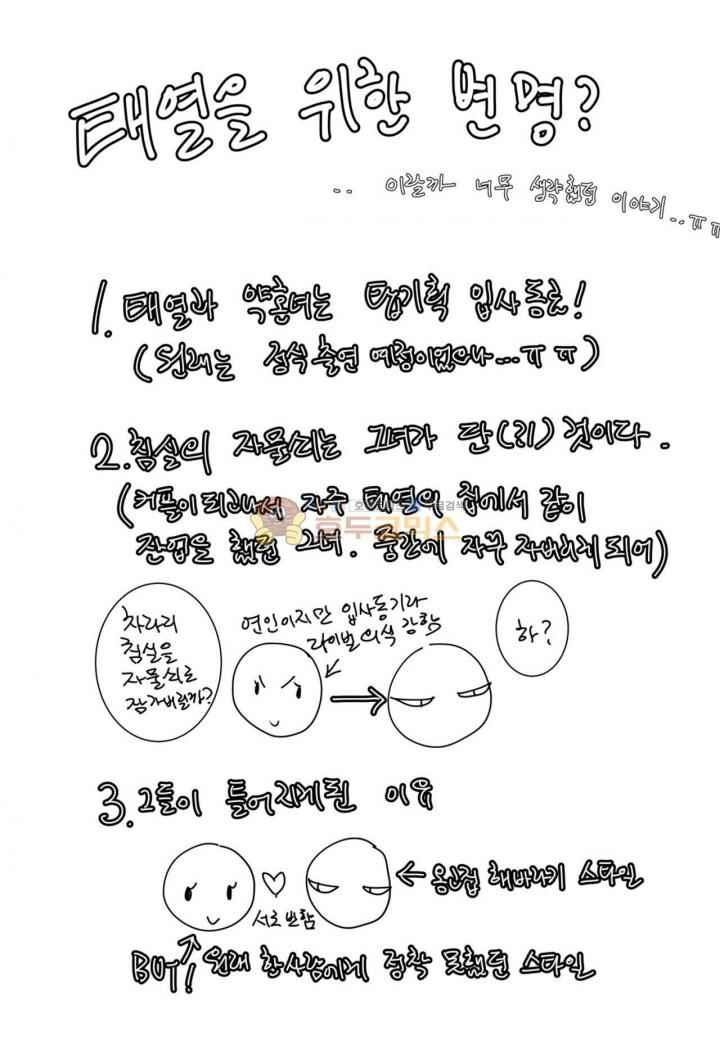 태열을 위한 변명?
.. 이랄까 너무 생략했던 이야기..ㅠㅠ
1. 태열과 약혼녀는 탑기획 입사동료!
(원래는 정식출연 예정이었으나...ㅠㅠ)
2. 침실의 자물쇠는 그녀가 단(리) 것이다.
(커플이 되고나서 자주 태열의 집에서 같이
잔업을 했던 그녀. 중간에 자꾸 자버리게 되어)
차라리
침실을
자물쇠로
잠가버릴까?
연인이지만 입사동기라
라이벌의식 강함
하?
호두코믹스
3. 그들이 틀어지게된 이유
서로 반함
← 옹고집 해바라기 스타일
BUT! 원래 한사람에게 정착 못했던 스타일